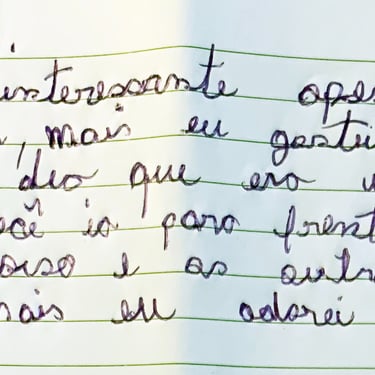 interessante ape
, mais eu gostei
deo que era u
ocê ia para frent
oiso e as outr
mais eu adorei